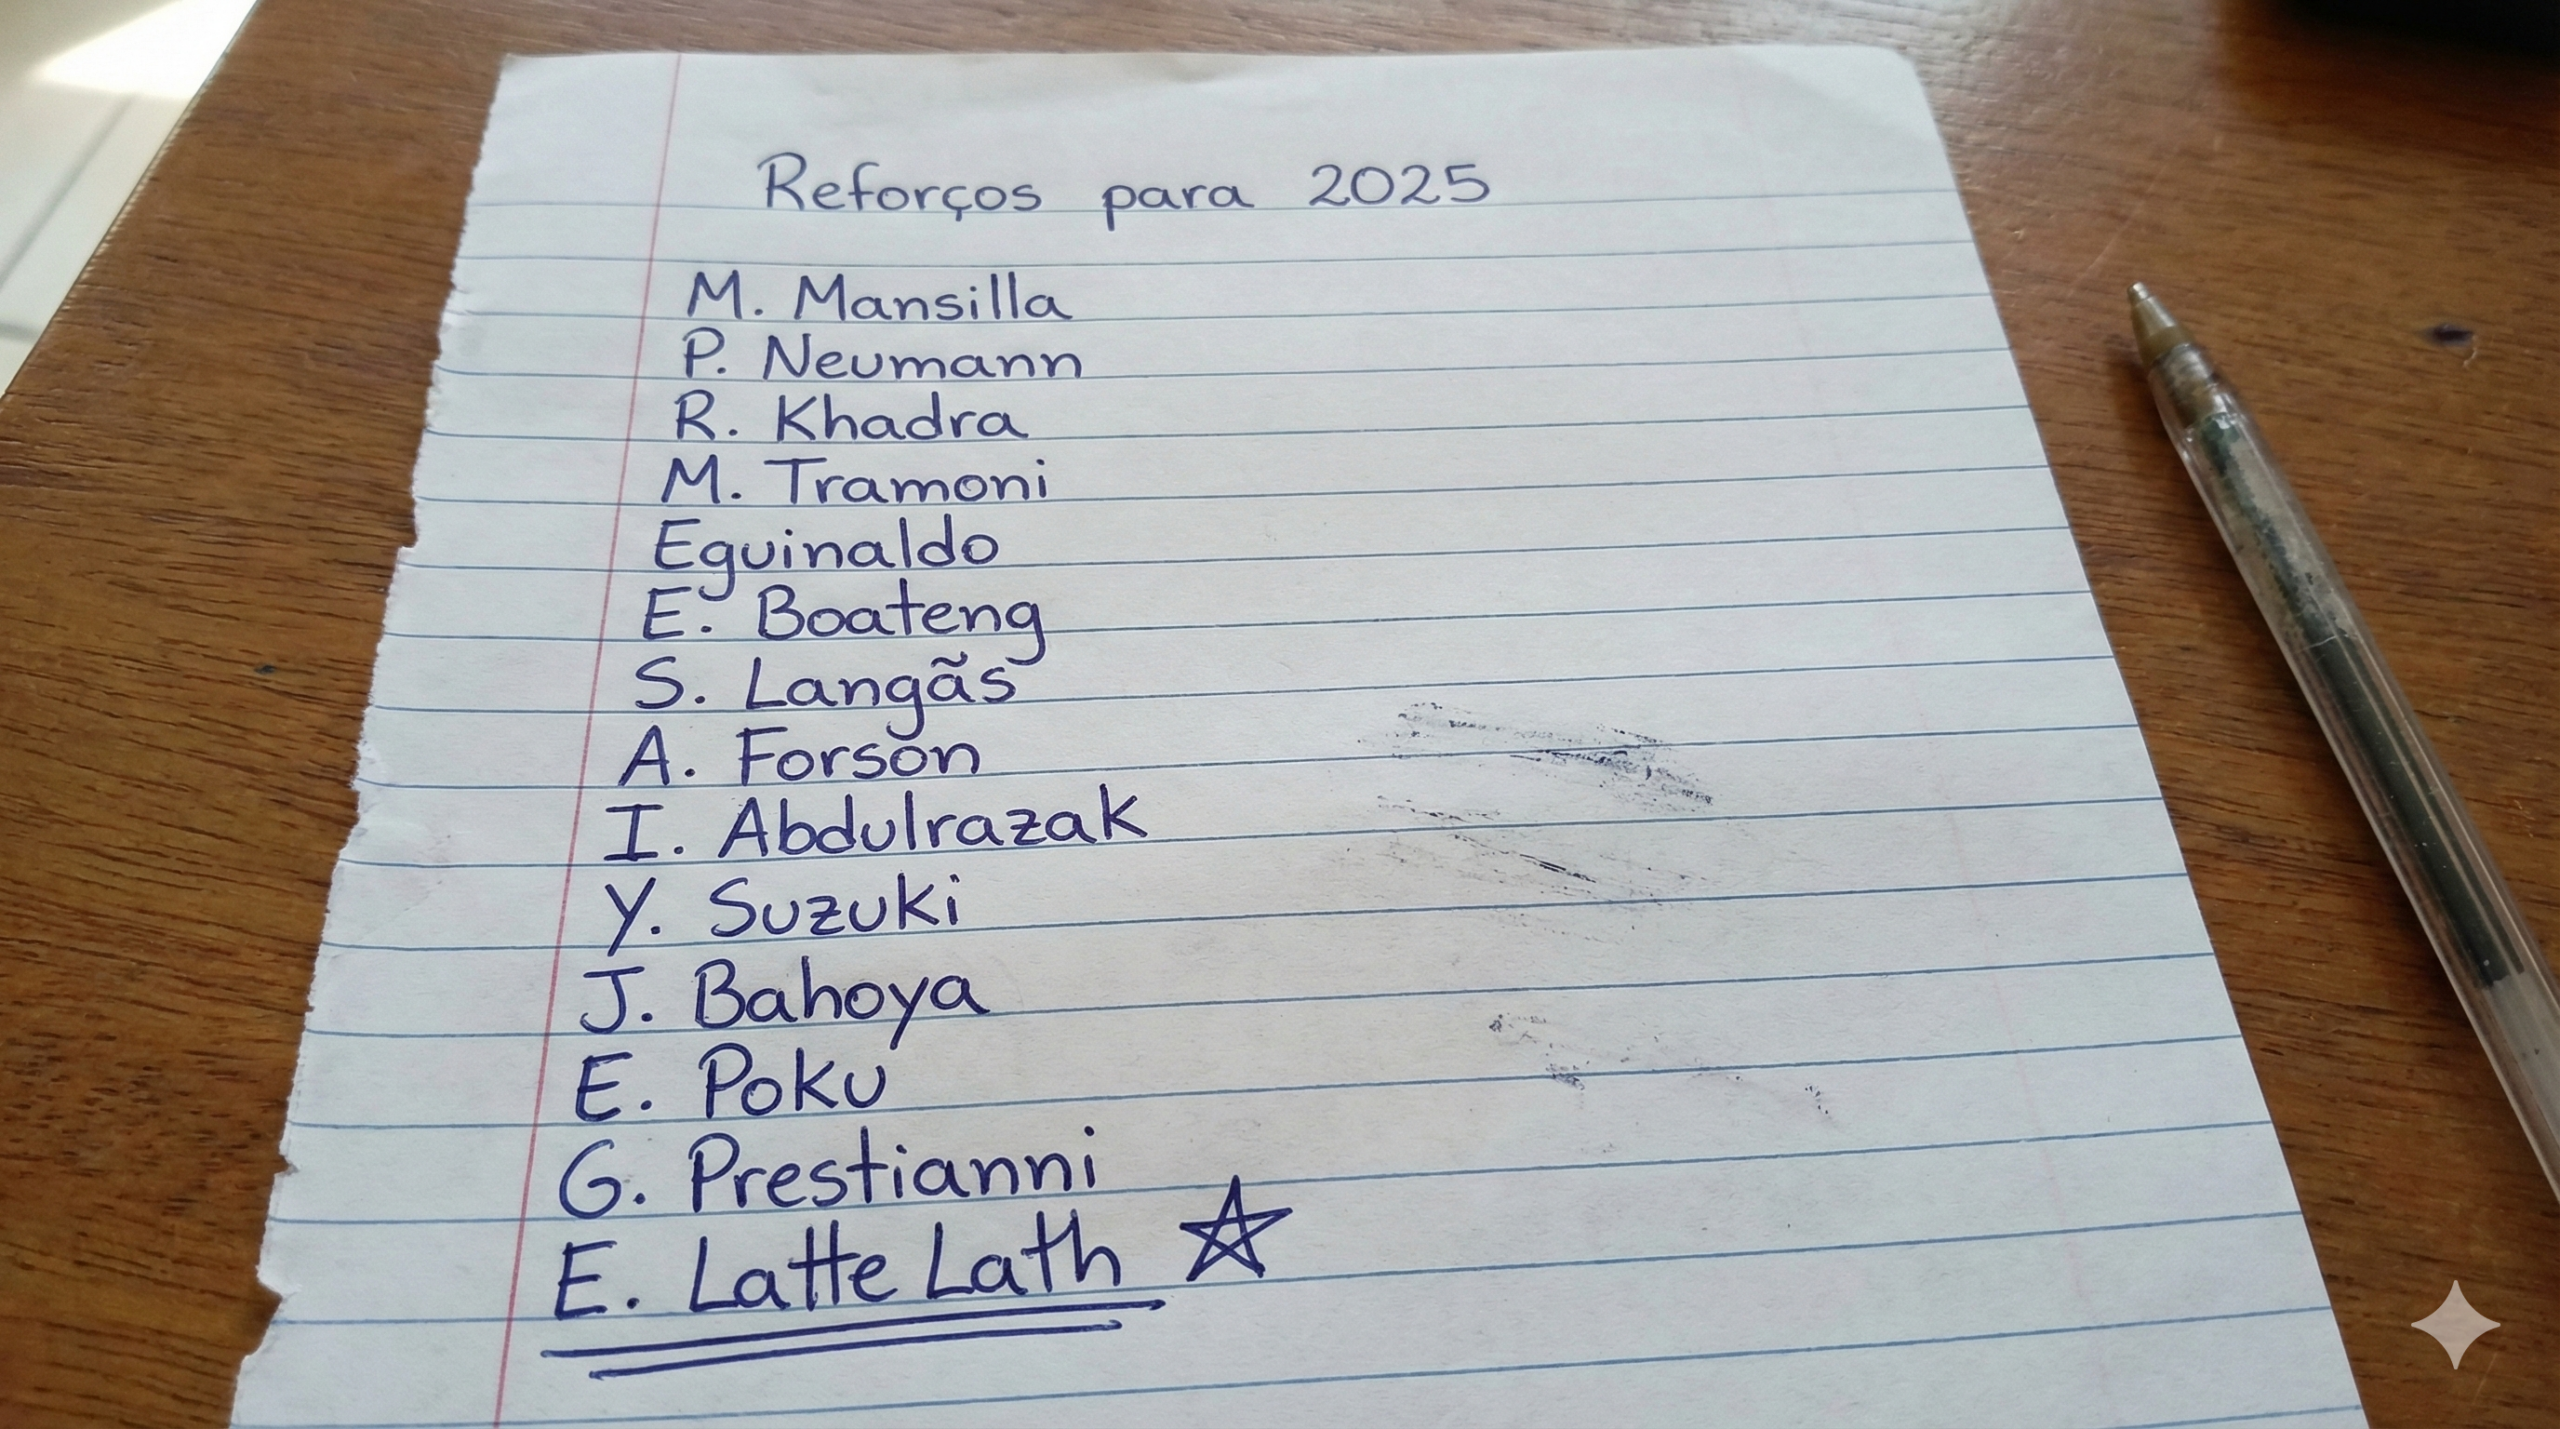 Reforços para 2025
M. Mansilla
P. Neumann
R. Khadra
M. Tramoni
Eguinaldo
E. Boateng
S. Langãs
A. Forson
I. Abdulrazak
Y. Suzuki
J. Bahoya
E. Poku
G. Prestianni
E. Latte Lath